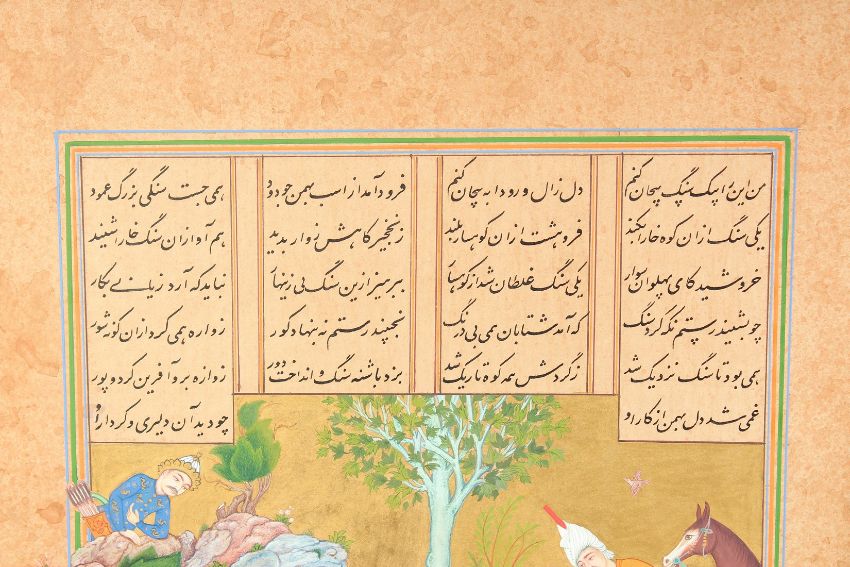 من این را بیک سنگ بیجان کنم دل زال و رودابه پیچان کنم فرود آمد از اسب بهمن چو دود همی جست سنگی بزرگ عمود
یکی سنگ ازان کوه خارا بکند فروهشت ازان کوهسار بلند ز نخجیرگاهش زواره بدید هم آواز ان سنگ خارا شنید
خروشید کای پهلوان سوار یکی سنگ غلطان شد از کوهسار بپرهیز ازین سنگ بی زینهار نباید که آرد زیانی بکار
چو بشنید رستم نگه کرد سنگ که آمد شتابان همی بی درنگ نجنبید رستم نه بنهاد گور زواره همی کرد ازان گونه شور
همی بود تا سنگ نزدیک شد ز گردش همه کوه تاریک شد بزد پاشنه سنگ و انداخت دور زواره برو آفرین کرد و پور
غمی شد دل بهمن از کار او چو دید آن دلیری و کردار او